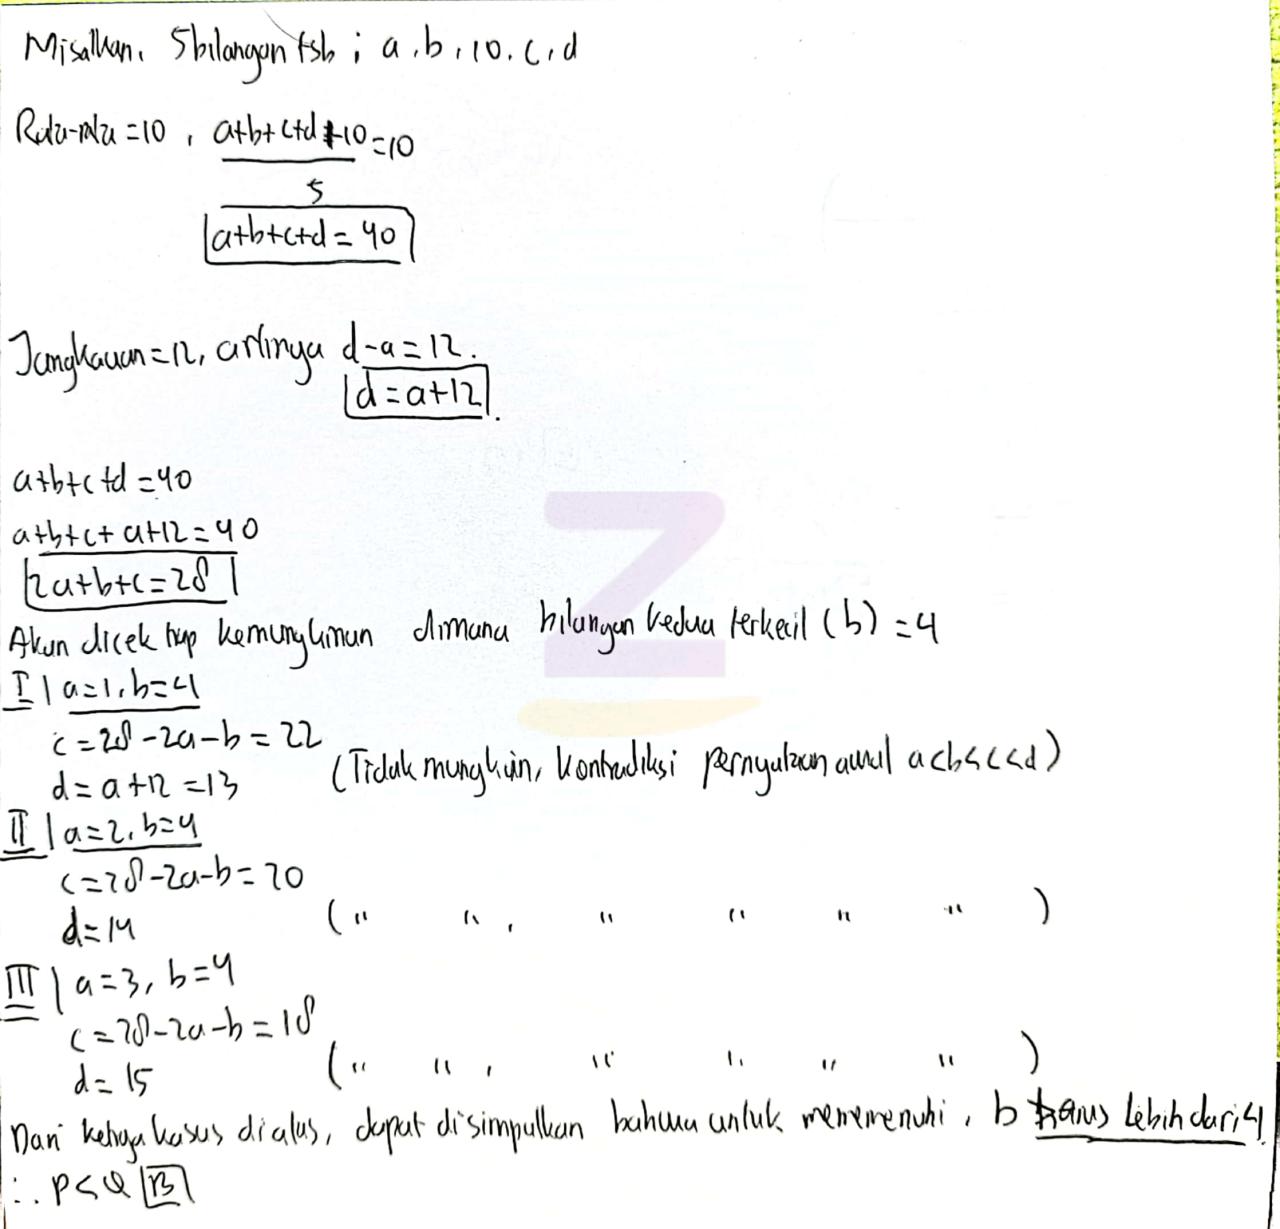 Misalkan, 5 bilangan tsb ; a, b, 10, c, d
Rata-rata = 10 , a+b+c+d+10 = 10
5
a+b+c+d = 40
Jangkauan = 12, artinya d-a = 12.
d = a+12
a+b+c+d = 40
a+b+c+a+12 = 40
2a+b+c = 28
Akan dicek tiap kemungkinan dimana bilangan kedua terkecil (b) = 4
I | a=1, b=4
c = 28-2a-b = 22
d = a+12 = 13 (Tidak mungkin, kontradiksi pernyataan awal a<b<c<d)
II | a=2, b=4
c = 28-2a-b = 20
d = 14 (" ", " " " ")
III | a=3, b=4
c = 28-2a-b = 18
d = 15 (" ", " " " ")
Dari ketiga kasus diatas, dapat disimpulkan bahwa untuk mememenuhi, b harus lebih dari 4
∴ P<Q B
Z